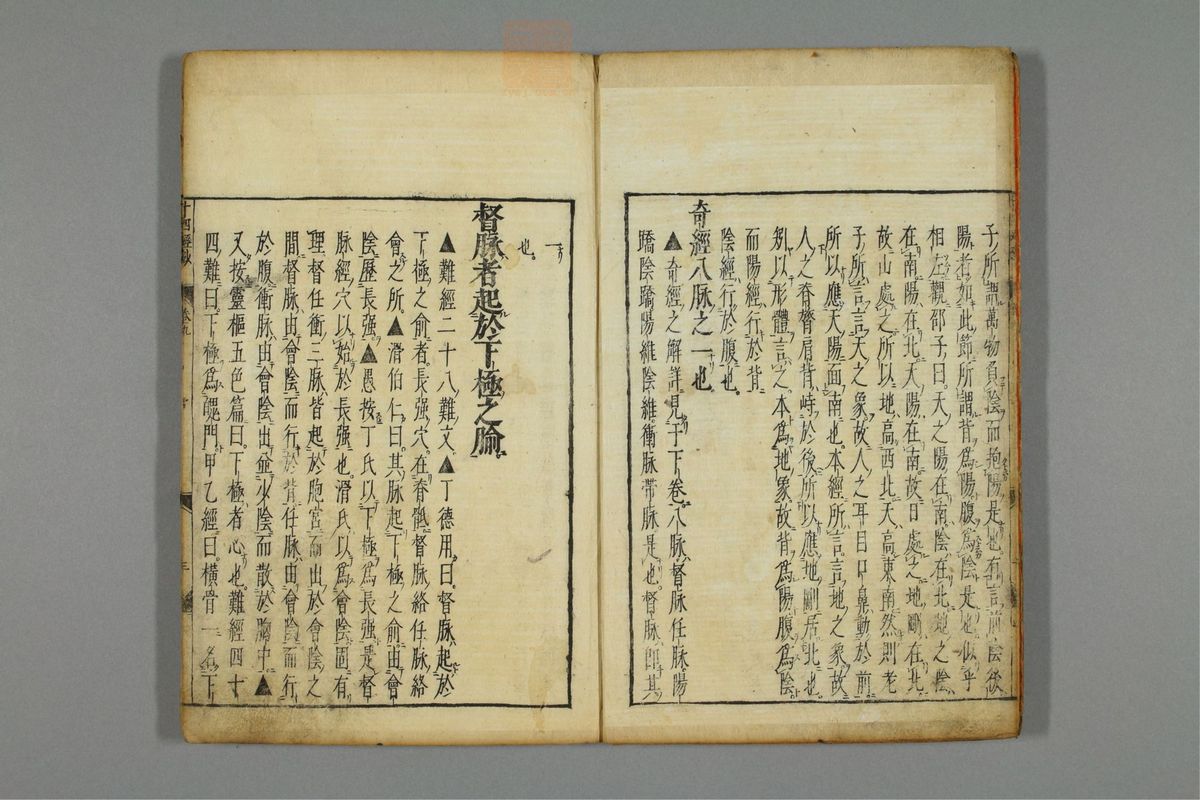 子所謂萬物負陰而抱陽是也有言前陰後
陽者如此節所謂背爲陽腹爲陰是也似乎
相左觀邵子曰天之陽在南陰在北地之陰
在南陽在北天陽在南故日處之地剛在北
故山處之所以地高西北天高東南然則老
子所言言天之象故人之耳目口鼻動於前
所以應天陽面南也本經所言言地之象故
人之脊膂肩背峙於後所以應地剛居北也
矧以形體言之本爲地象故背爲陽腹爲陰
而陽經行於背
陰經行於腹也
奇經八脉之一也
▲奇經之解詳見于下卷八脉督脉任脉陽
蹻陰蹻陽維陰維衝脉帶脉是也督脉卽其
一
也
督脉者起於下極之腧
▲難經二十八難文▲丁德用曰督脉起於
下極之俞者長強穴在脊骶督脉絡任脉絡
會之所▲滑伯仁曰其脉起下極之俞由會
陰歷長强▲愚按丁氏以下極爲長强是督
脉經穴以始於長强也滑氏以爲會陰固有
理督任衝三脉皆起於胞宮而出於會陰之
間督脉由會陰而行於背任脉由會陰而行
於腹衝脉由會陰出並少陰而散於胸中▲
又按靈樞五色篇曰下極者心也難經四十
四難曰下極爲魄門甲乙經曰橫骨一名下
十四經鈔
卷九